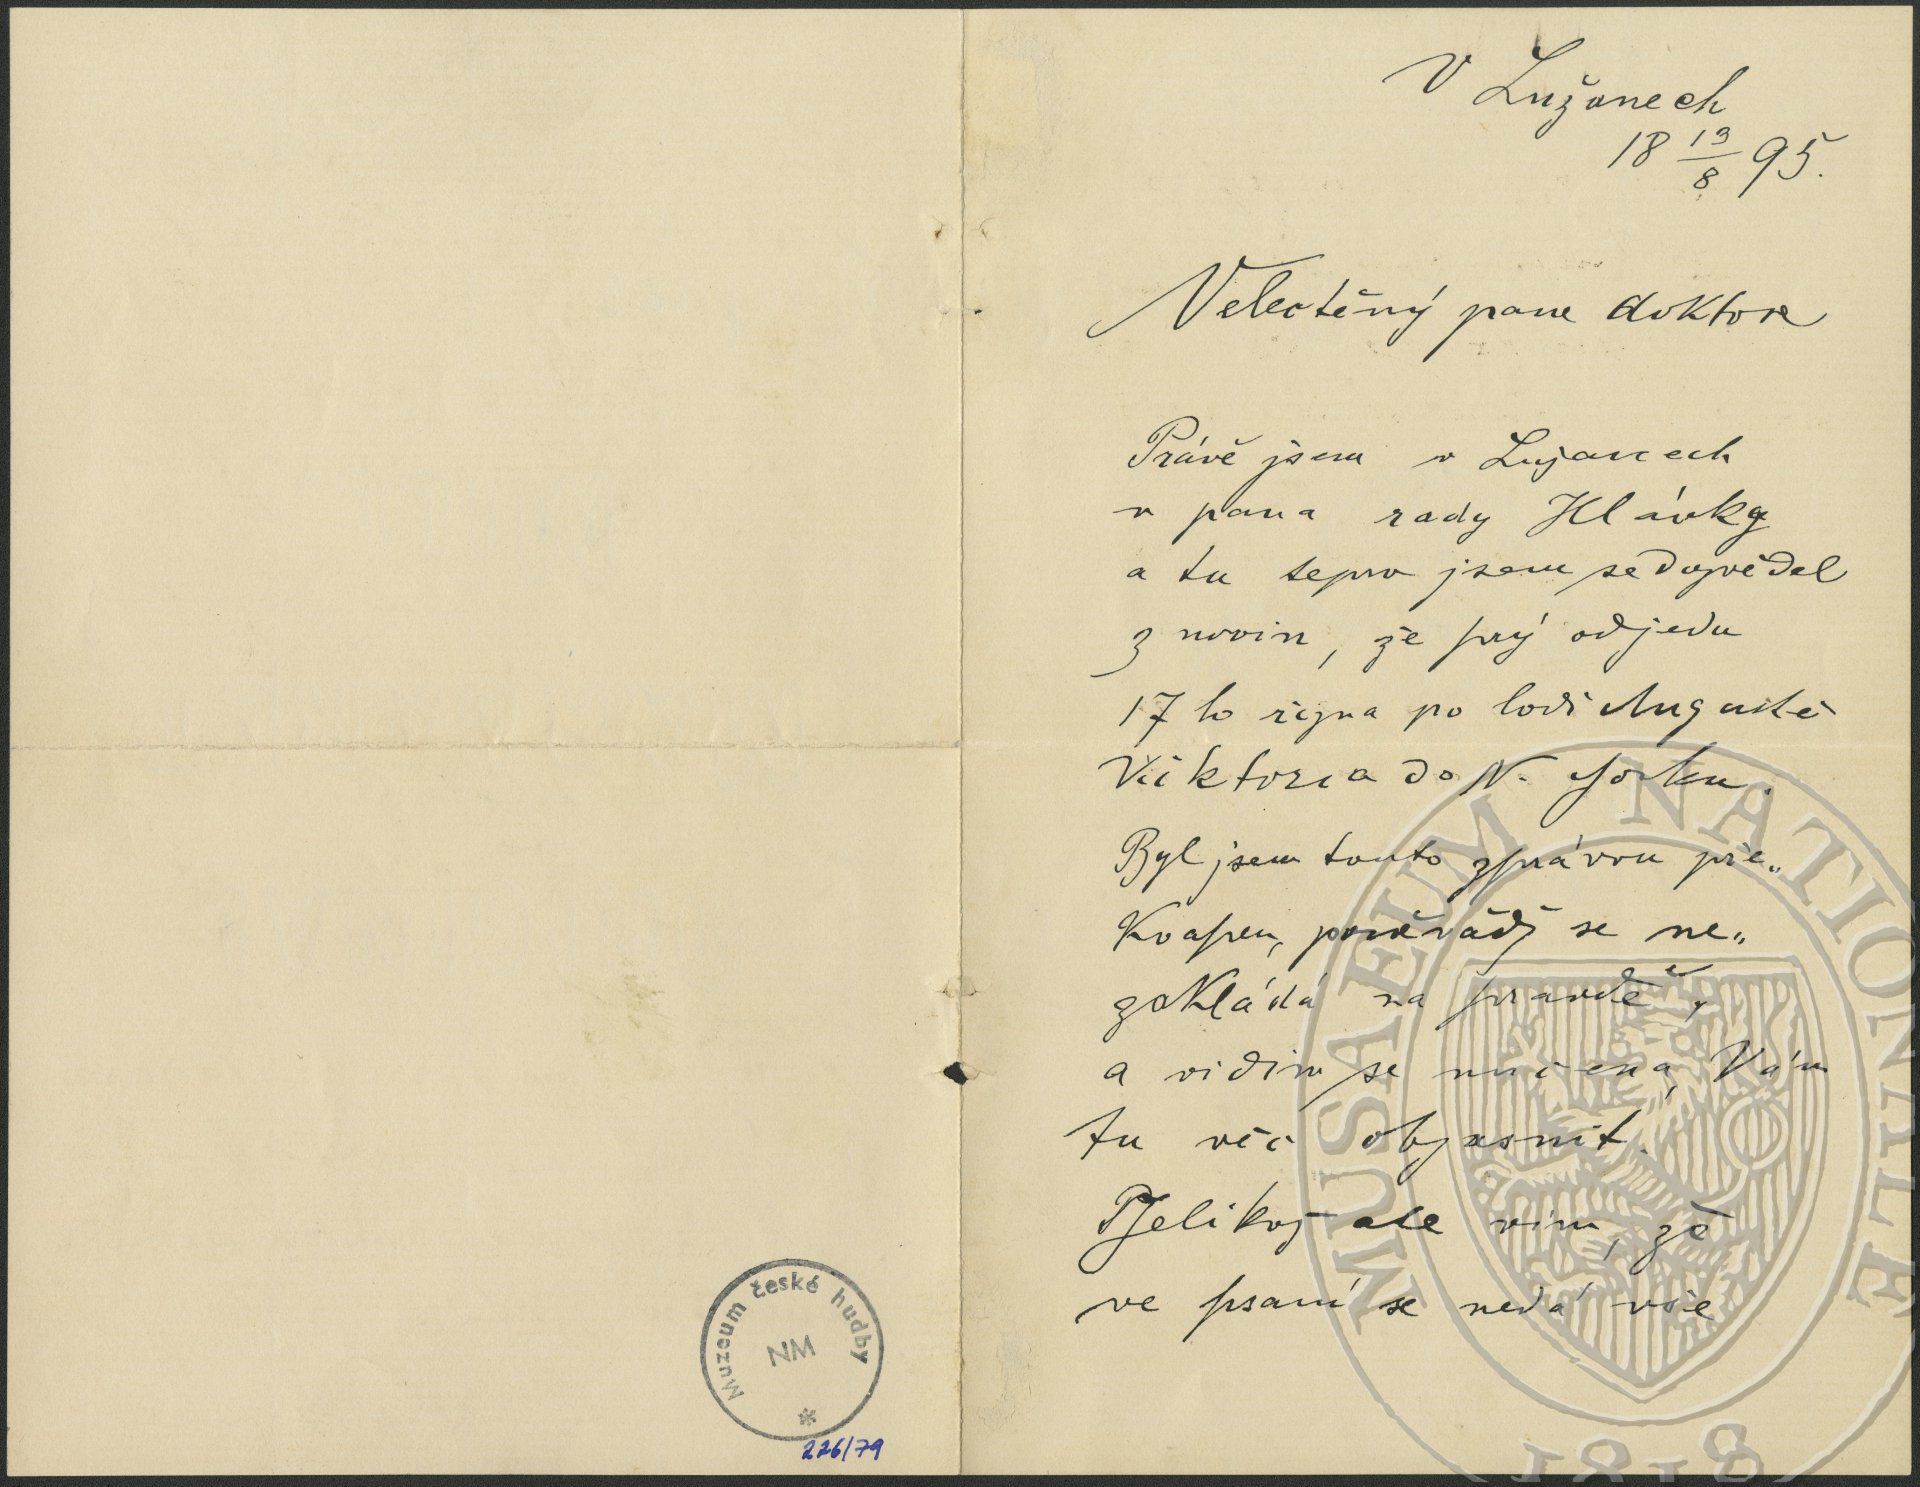 Muzeum české hudby
NM
226/79
V Lužanech
18 19/8 95.
Velectěný pane doktore
Právě jsem v Lužanech
u pana rady Hlávky
a tu teprv jsem se dozvěděl
z novin, že prý odjedu
17ho října po lodi Augusté
Viktoria do N. Yorku.
Byl jsem touto zprávou pře„
kvapen, poněvádž se ne„
zakládá na pravdě,
a vidim se nucena, Vám
tu věc objasnit.
Jelikož ale vim, že
ve psaní se nedá vše
MUSAEUM NATIONALE
1818